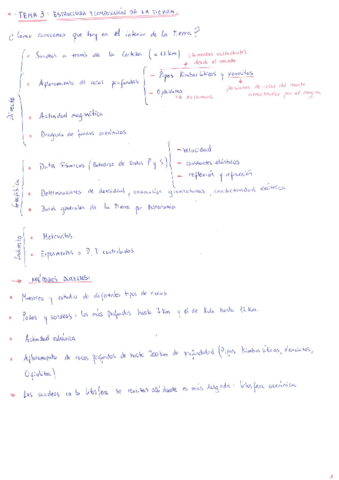 • TEMA 3: ESTRUCTURA Y COMPOSICIÓN DE LA TIERRA.
¿Cómo conocemos que hay en el interior de la Tierra?
Directo
• Sondeos a través de la Corteza (< 13 km)
desde el manto
• Afloramiento de rocas profundas
– Pipas Kimberlíticas y xenolitos
– Ofiolitas
• Actividad magmática
• Dragas de fondos oceánicos
• Datos Sísmicos (Estudios de ondas P y S)
– velocidad
– constantes elásticas
– reflexión y refracción
• Determinaciones de densidad, anomalías gravimétricas, conductividad eléctrica
• Datos generales de la Tierra por Astronomía
Indirecto
• Meteoritos
• Experimentos a P, T controlados
→ MÉTODOS DIRECTOS:
• Muestreo y estudio de diferentes tipos de rocas
• Pozos y sondeos: los más profundos hasta 9 km y el de Kola hasta 12 km.
• Actividad volcánica
• Afloramiento de rocas profundas de hasta 200 km de profundidad (Pipas Kimberlíticas, Xenolitos,
Ofiolitas)
→ Los sondeos en la litosfera se realizan allí donde es más delgada: litosfera oceánica
1